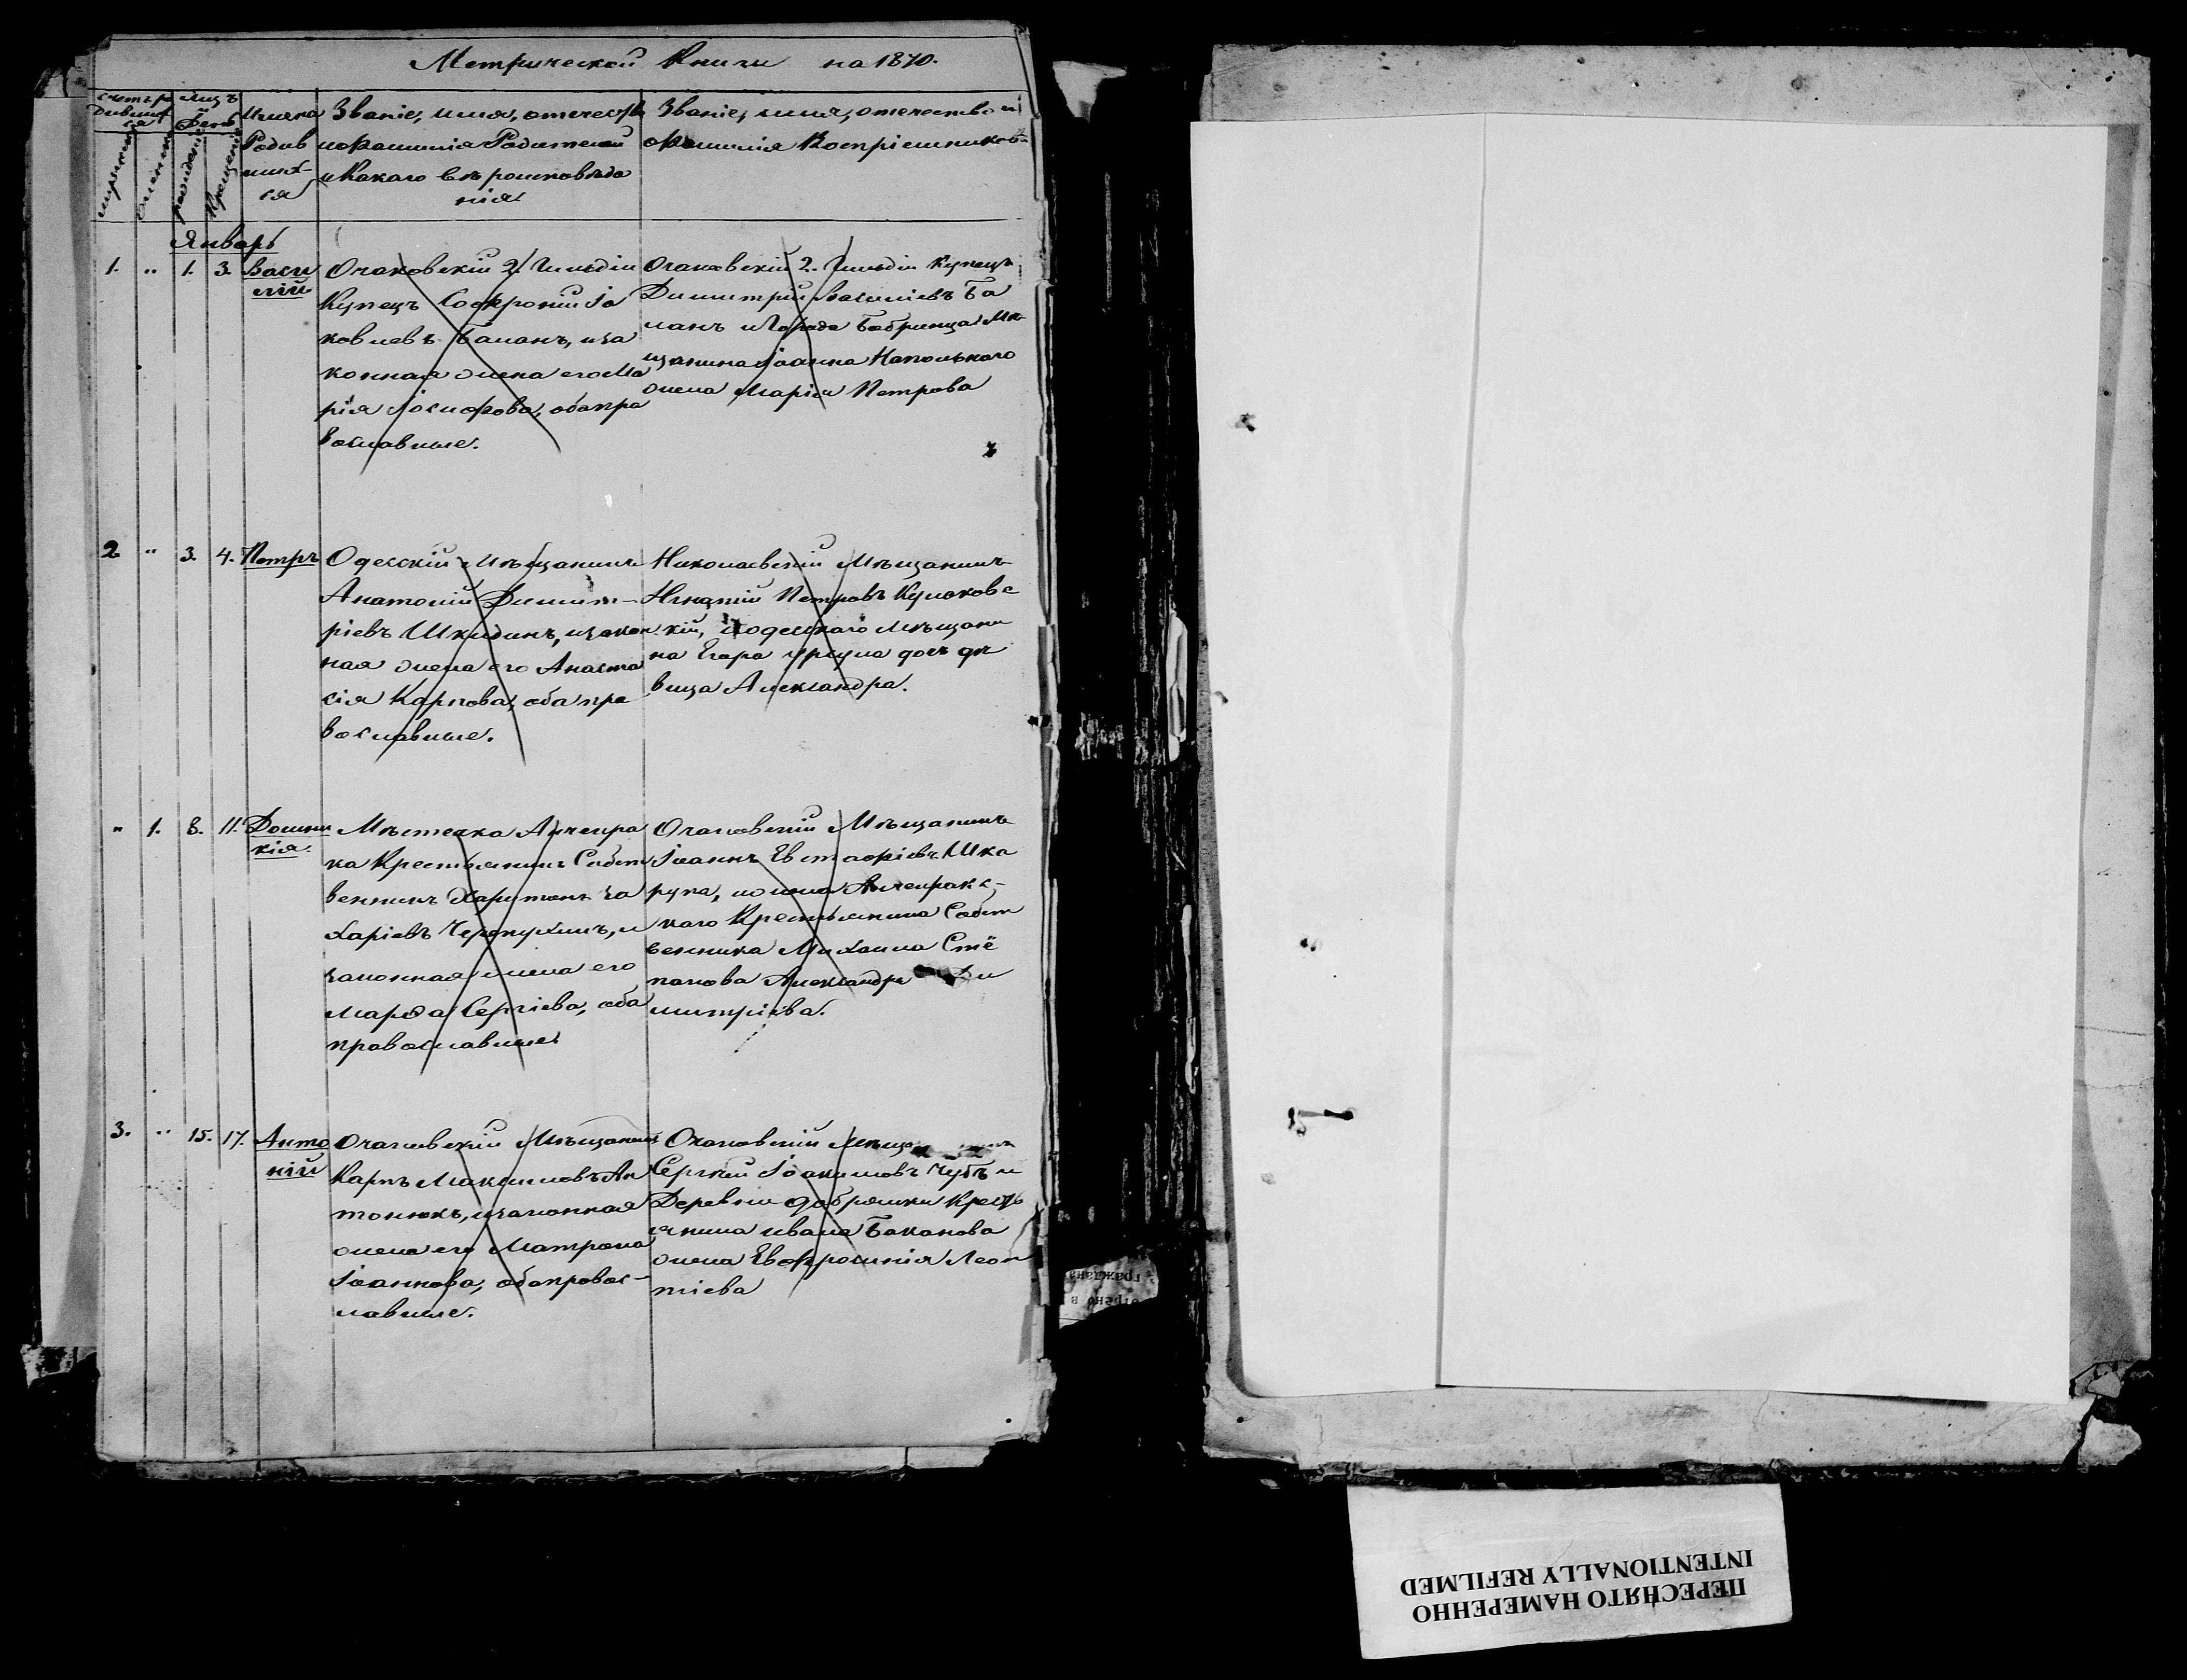 Метрической Книги на 1870.
Счетъ ро
дивших
ся
мужеска
женска
Мц ъ
День
рожденія
Крещенія
Имена
Родив
ших-
ся
Званіе, имя, отчество
и Фамилія Родителей
и Какаго вѣроисповѣда
нія
Званіе, имя, отчество и
Фамилія Воспріемниковъ
Январь
1. " 1. 3. Васи
лій
Очаковскій 2. Гильдіи
Купецъ Софроній Іа
ковлевъ Баланъ, и за
конная жена его Ма
рія Іосифова, оба пра
вославные.
Очаковскій 2. Гильдіи Купецъ
Димитрій Василіевъ Ба
ланъ и Города Бобринца Мѣ
щанина Іоанна Напольнаго
жена Марія Петрова
2 " 3. 4. Петръ
Одесскій Мѣщанинъ
Анатолій Димит-
ріевъ Шкидинъ, и закон
ная жена его Анаста
сія Карпова, оба пра
вославные.
Николаевскій Мѣщанинъ
Игнатій Петровъ Кулаковс
кій, и одескаго мѣщани
на Егора Урсула дочь дѣ
вица Александра.
" 1. 8. 11. Домни
кія.
Мѣстечка Анчекра
ка Крестьянинъ Собст
венникъ Харитонъ За
харіевъ Черепухинъ, и
законная жена его
Марѳа Сергіева, оба
православные
Очаковскій Мѣщанинъ
Іоаннъ Евстафіевъ Шка
рупа, и жена Анчекракс-
каго Крестьянина Собст
венника Михаила Сте
панова Александра Ди
митріева.
3. " 15. 17. Анто
ній
Очаковскій Мѣщанинъ
Карпъ Максимовъ Ан
тонюкъ, и законная
жена его Матрона
Іоаннова, оба правос-
лавные.
Очаковскій Мѣща
Сергѣй Іоакимовъ Чубъ и
Деревни Добрянки Кресть
янина Ивана Баканова
жена Евфросинія Леон
тіева
граждана
ПЕРЕСНЯТО НАМЕРЕННО
INTENTIONALLY REFILMED